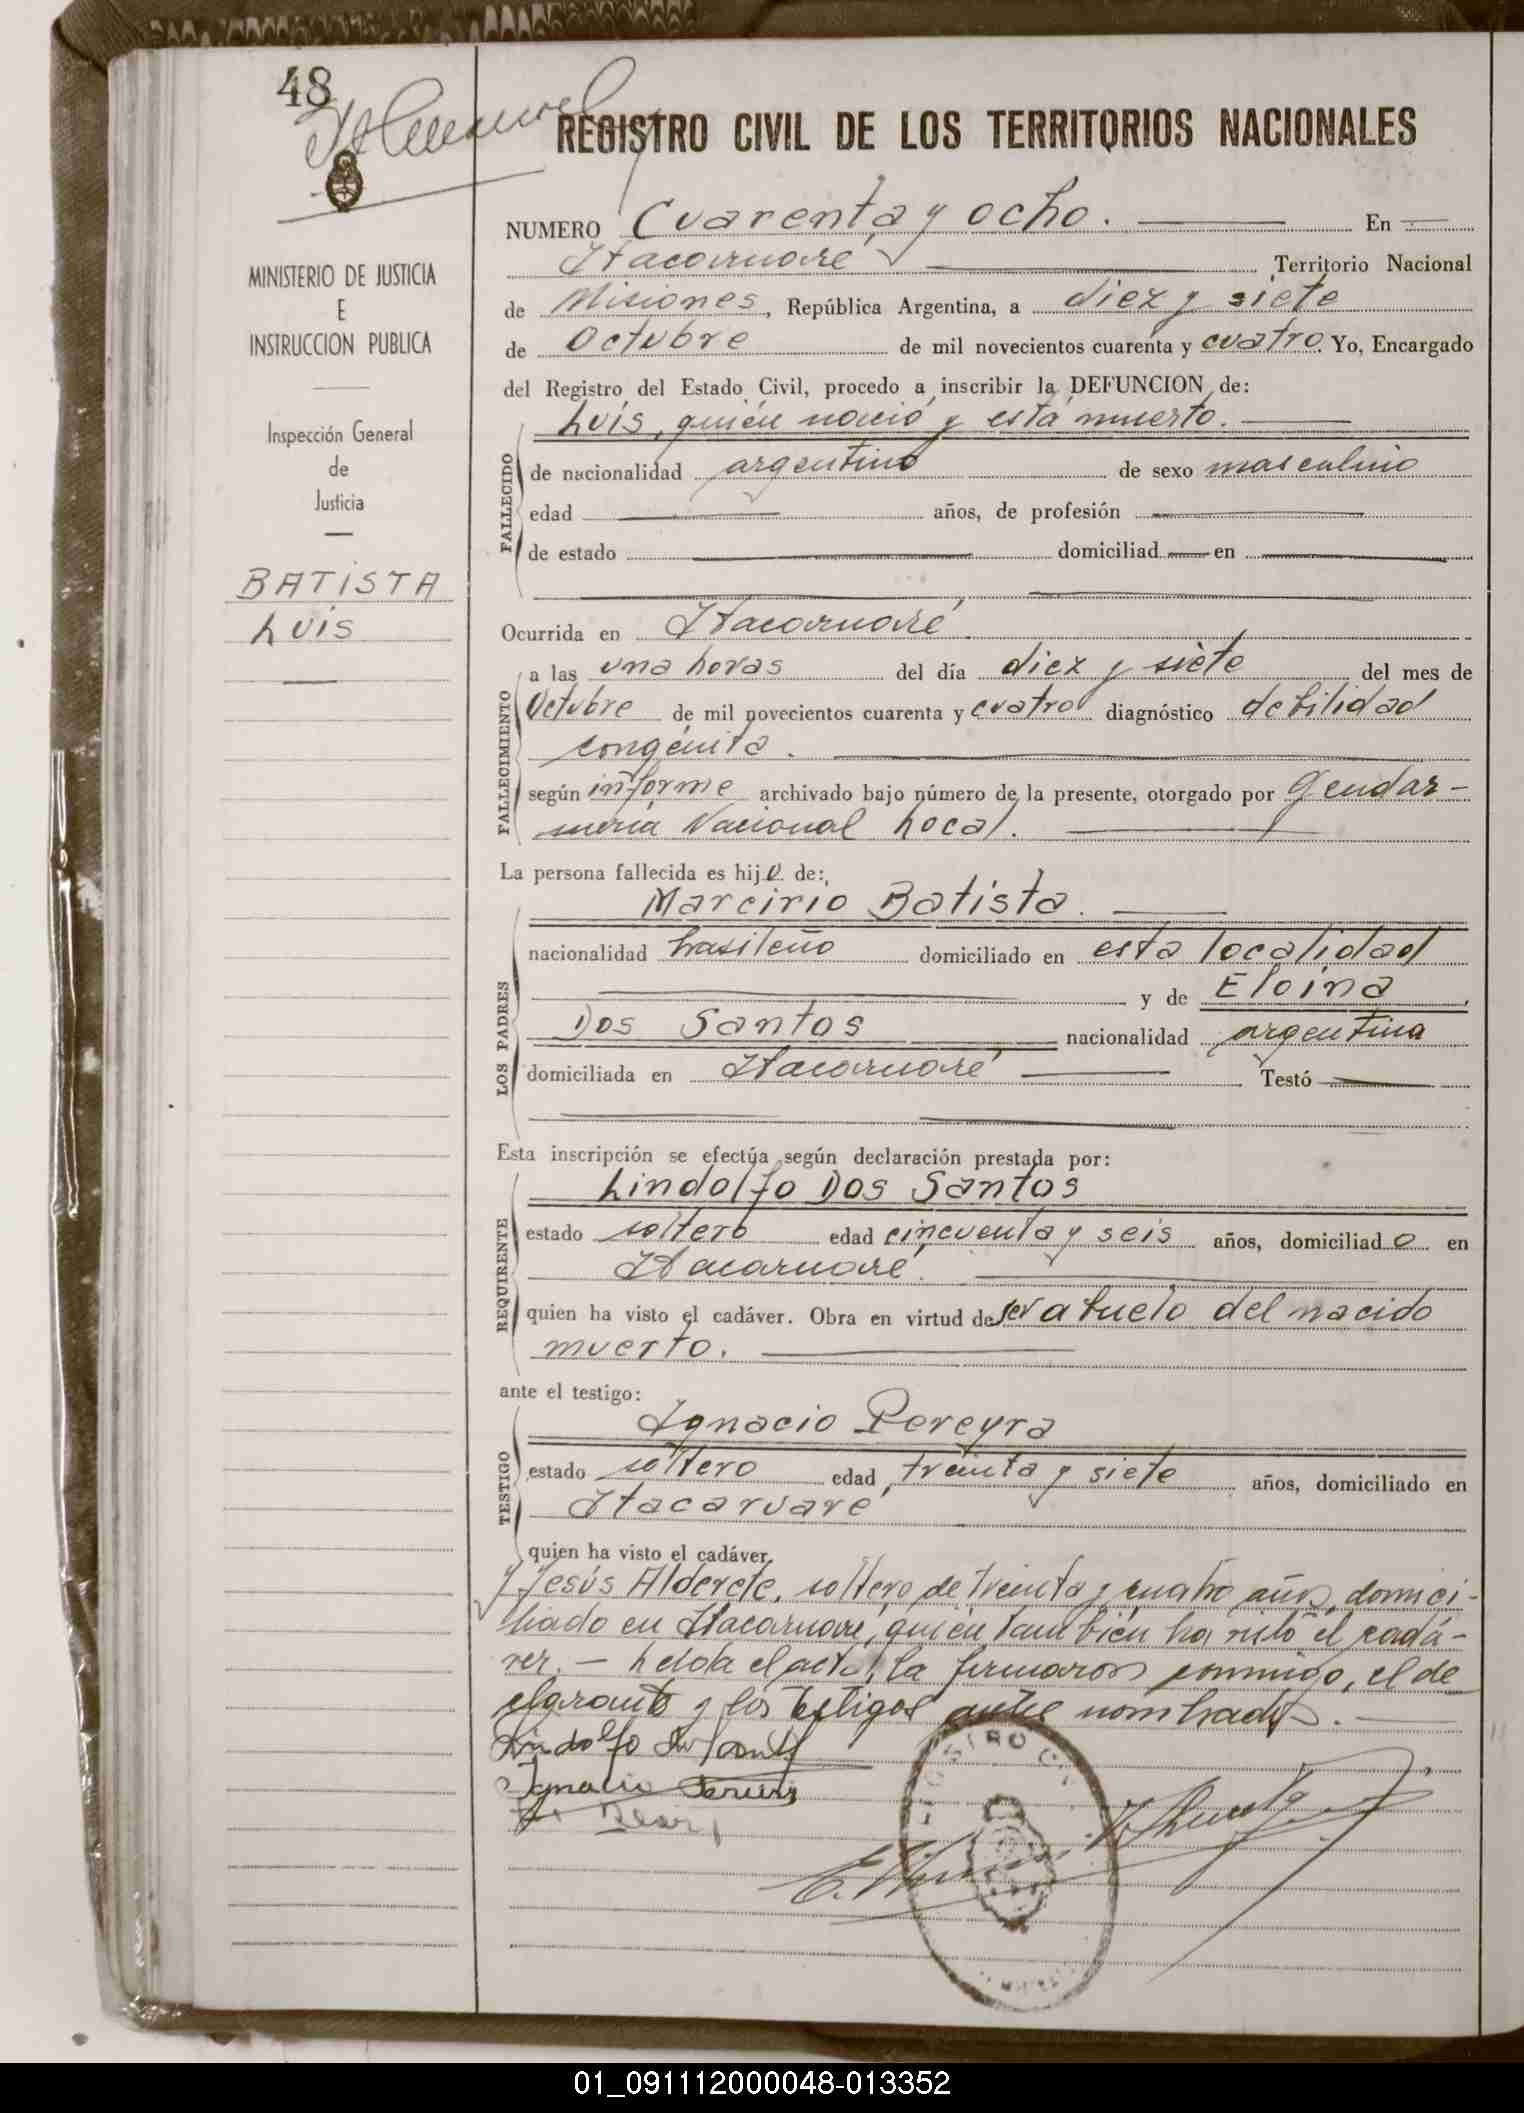 48
REGISTRO CIVIL DE LOS TERRITORIOS NACIONALES
MINISTERIO DE JUSTICIA
E
INSTRUCCION PUBLICA
Inspección General
de
Justicia
BATISTA
Luis
NUMERO Cuarenta y ocho. En
Itacaruaré Territorio Nacional
de Misiones, República Argentina, a diez y siete
de Octubre de mil novecientos cuarenta y cuatro. Yo, Encargado
del Registro del Estado Civil, procedo a inscribir la DEFUNCION de:
Luis, quién nació y está muerto.
FALLECIDO
de nacionalidad argentino de sexo masculino
edad años, de profesión
de estado domiciliad en
Ocurrida en Itacaruaré.
FALLECIMIENTO
a las una horas del día diez y siete del mes de
Octubre de mil novecientos cuarenta y cuatro diagnóstico debilidad
congénita.
según informe archivado bajo número de la presente, otorgado por Gendar-
mería Nacional Local.
La persona fallecida es hijo de:
LOS PADRES
Marcirio Batista.
nacionalidad brasileño domiciliado en esta localidad
y de Eloina
Dos Santos nacionalidad argentina
domiciliada en Itacaruaré Testó
Esta inscripción se efectúa según declaración prestada por:
REQUIRENTE
Lindolfo Dos Santos
estado soltero edad cincuenta y seis años, domiciliado en
Itacaruaré.
quien ha visto el cadáver. Obra en virtud de ser abuelo del nacido
muerto.
ante el testigo:
TESTIGO
Ignacio Pereyra
estado soltero edad treinta y siete años, domiciliado en
Itacaruaré
quien ha visto el cadáver.
y Jesús Alderete, soltero de treinta y cuatro años, domici-
liado en Itacaruaré, quién también ha visto el cadá-
ver. - Leida el acta, la firmaron conmigo, el de
clarante y los testigos antes nombrados.
Lindolfo
Ignacio
01_091112000048-013352